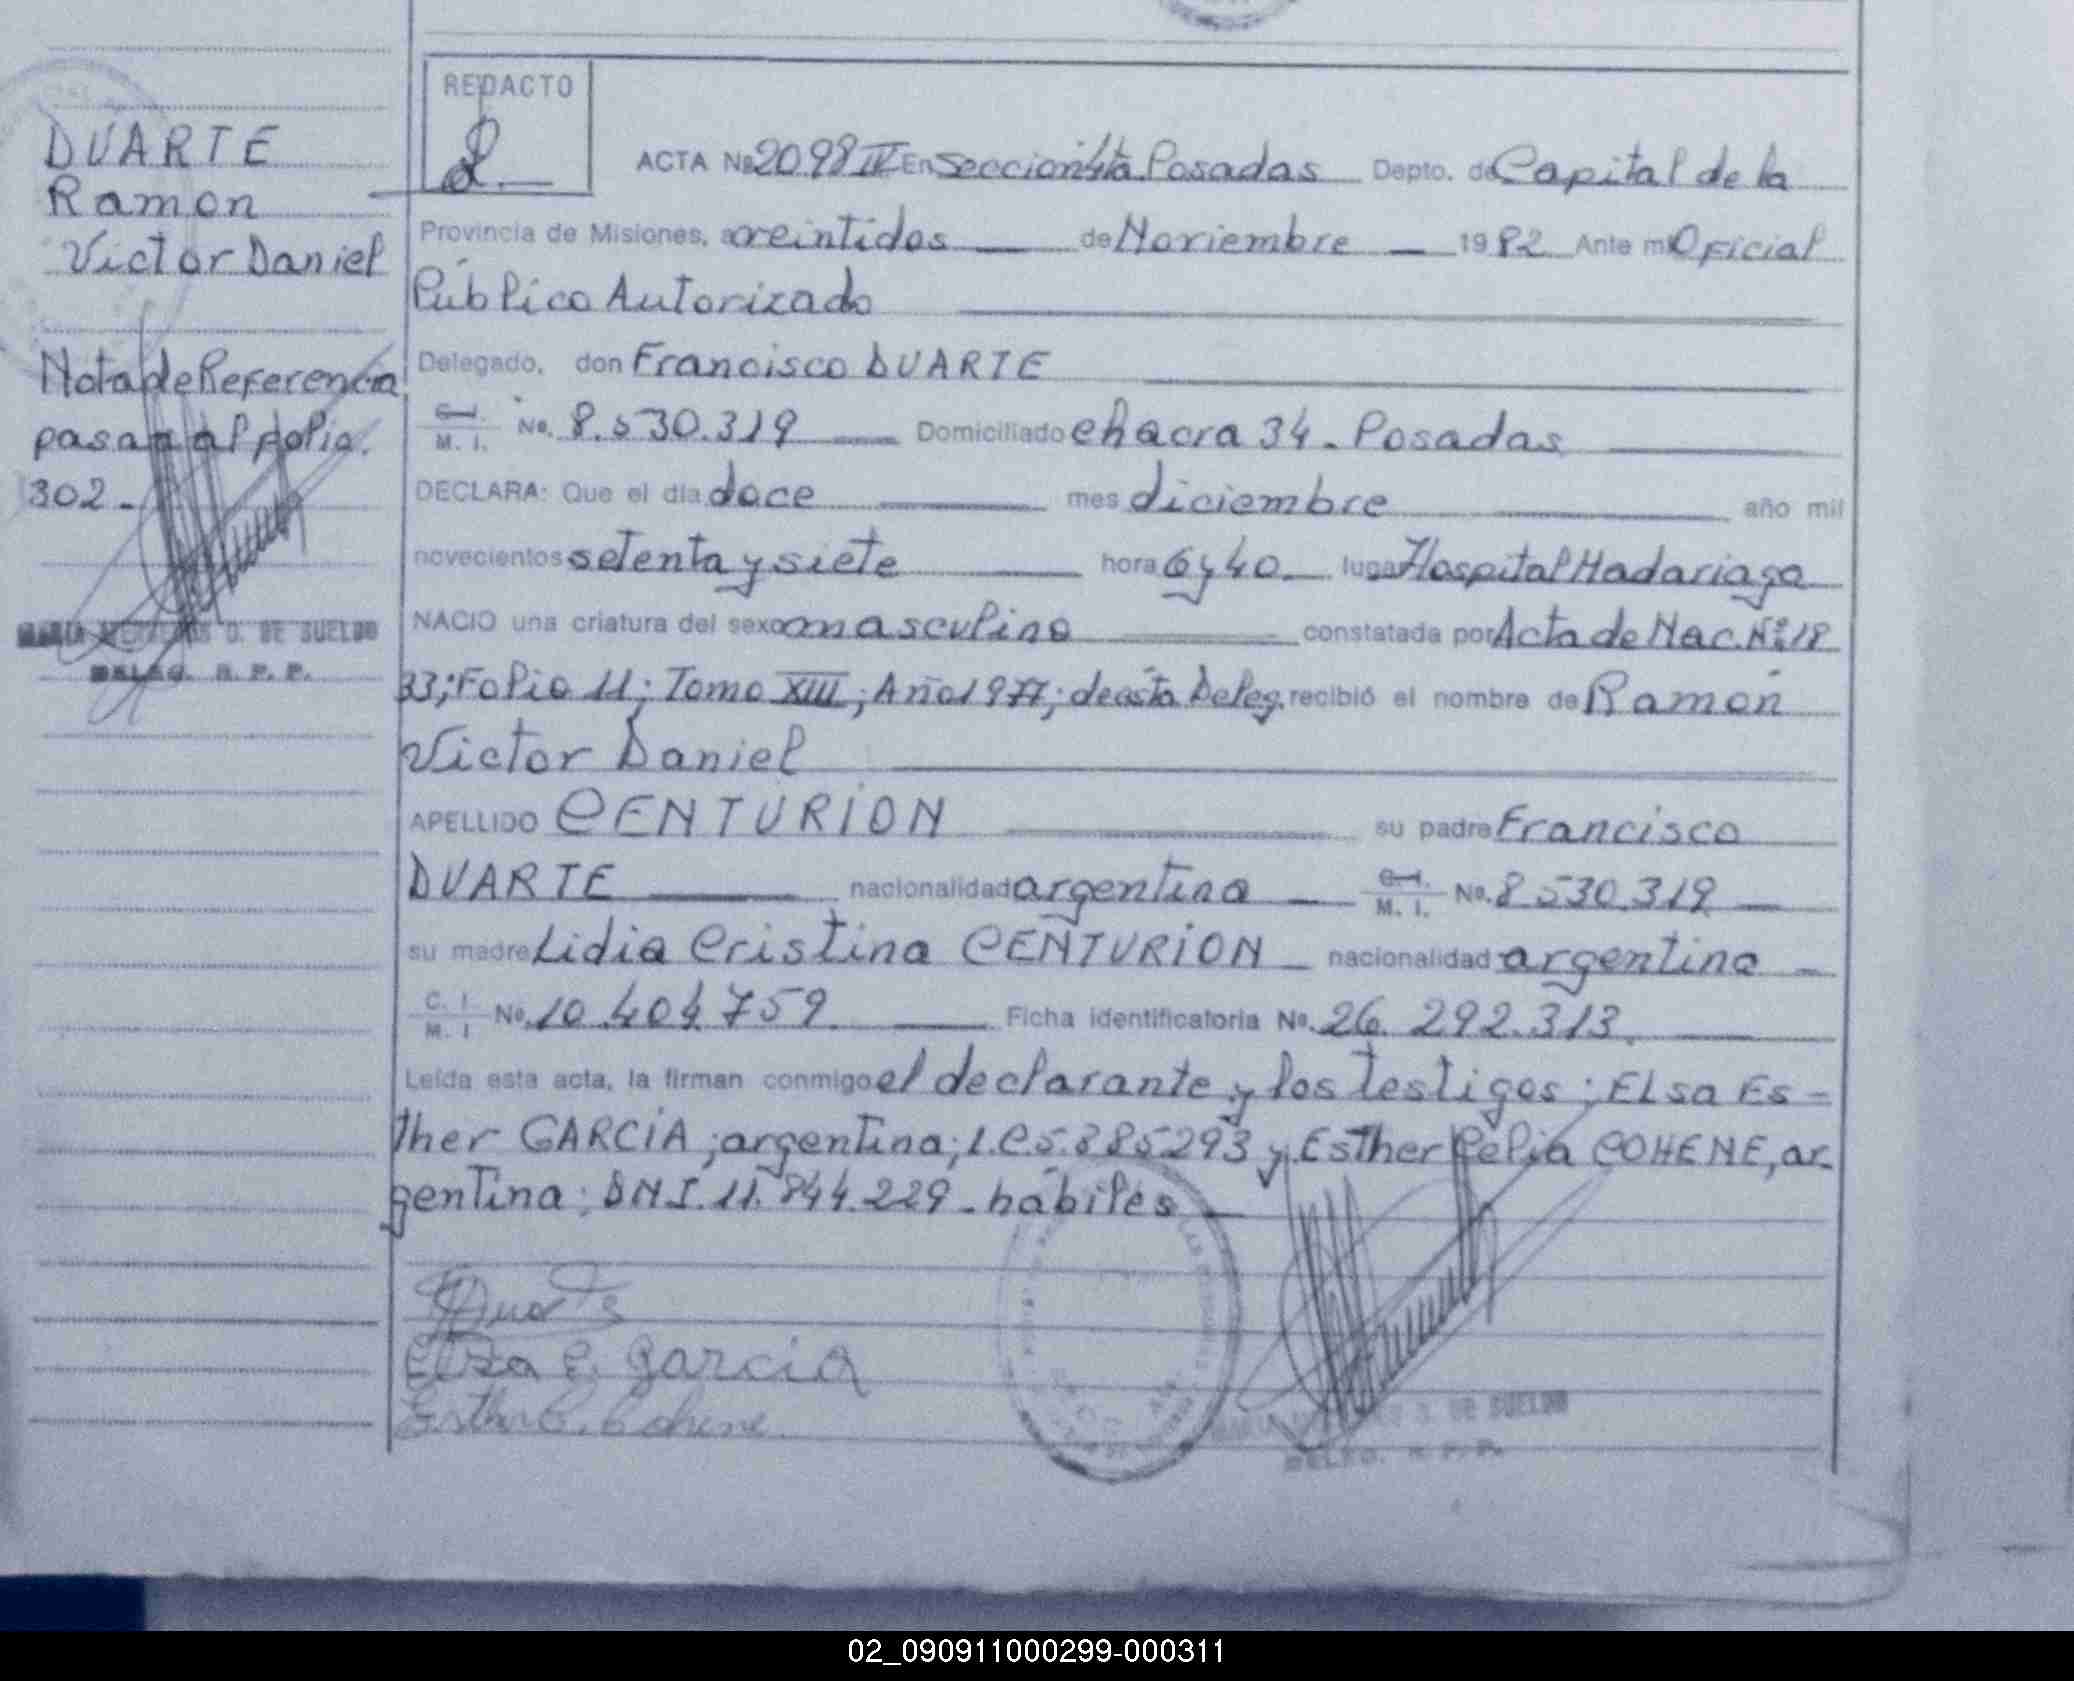 DUARTE
Ramon
Victor Daniel
Nota de Referencia
pasa a al folio.
302.-
MARIA MERCEDES D. DE SUELDO
DELEG. R. P. P.
REDACTO
ACTA No 2098 IV En Sección 4ta Posadas Depto. de Capital de la
Provincia de Misiones, a veintidos de Noviembre 1982 Ante mi Oficial
Público Autorizado
Delegado, don Francisco DUARTE
C. I.
M. I. No. 8.530.319 Domiciliado chacra 34. Posadas
DECLARA: Que el día doce mes diciembre año mil
novecientos setenta y siete hora 6 y 40 lugar Hospital Madariaga
NACIO una criatura del sexo masculino constatada por Acta de Nac. Nº 18
33; Folio 11; Tomo XIII; Año 1977; de esta Deleg. recibió el nombre de Ramón
Victor Daniel
APELLIDO CENTURION su padre Francisco
DUARTE nacionalidad argentina C. I.
M. I. No. 8530.319
su madre Lidia Cristina CENTURION nacionalidad argentina
C. I.
M. I No. 10.404.759 Ficha identificatoria No. 26.292.313.
Leída esta acta, la firman conmigo el declarante y los testigos: ELsa Es-
ther GARCIA; argentina; L.C.5.385.293 y Esther Celia COHENE, ar-
gentina: DNI. 11.844.229 - hábiles
Duarte
Elsa E. Garcia
Esther C. Cohene.
DE SUELDO
DELEG. R. P. P.
02_090911000299-000311